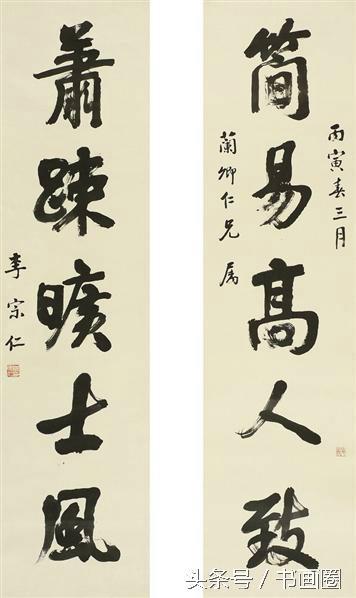 丙寅春三月
蘭卿仁兄属
简易高人致
蕭踈曠士風
李宗仁
头条号/书画圈